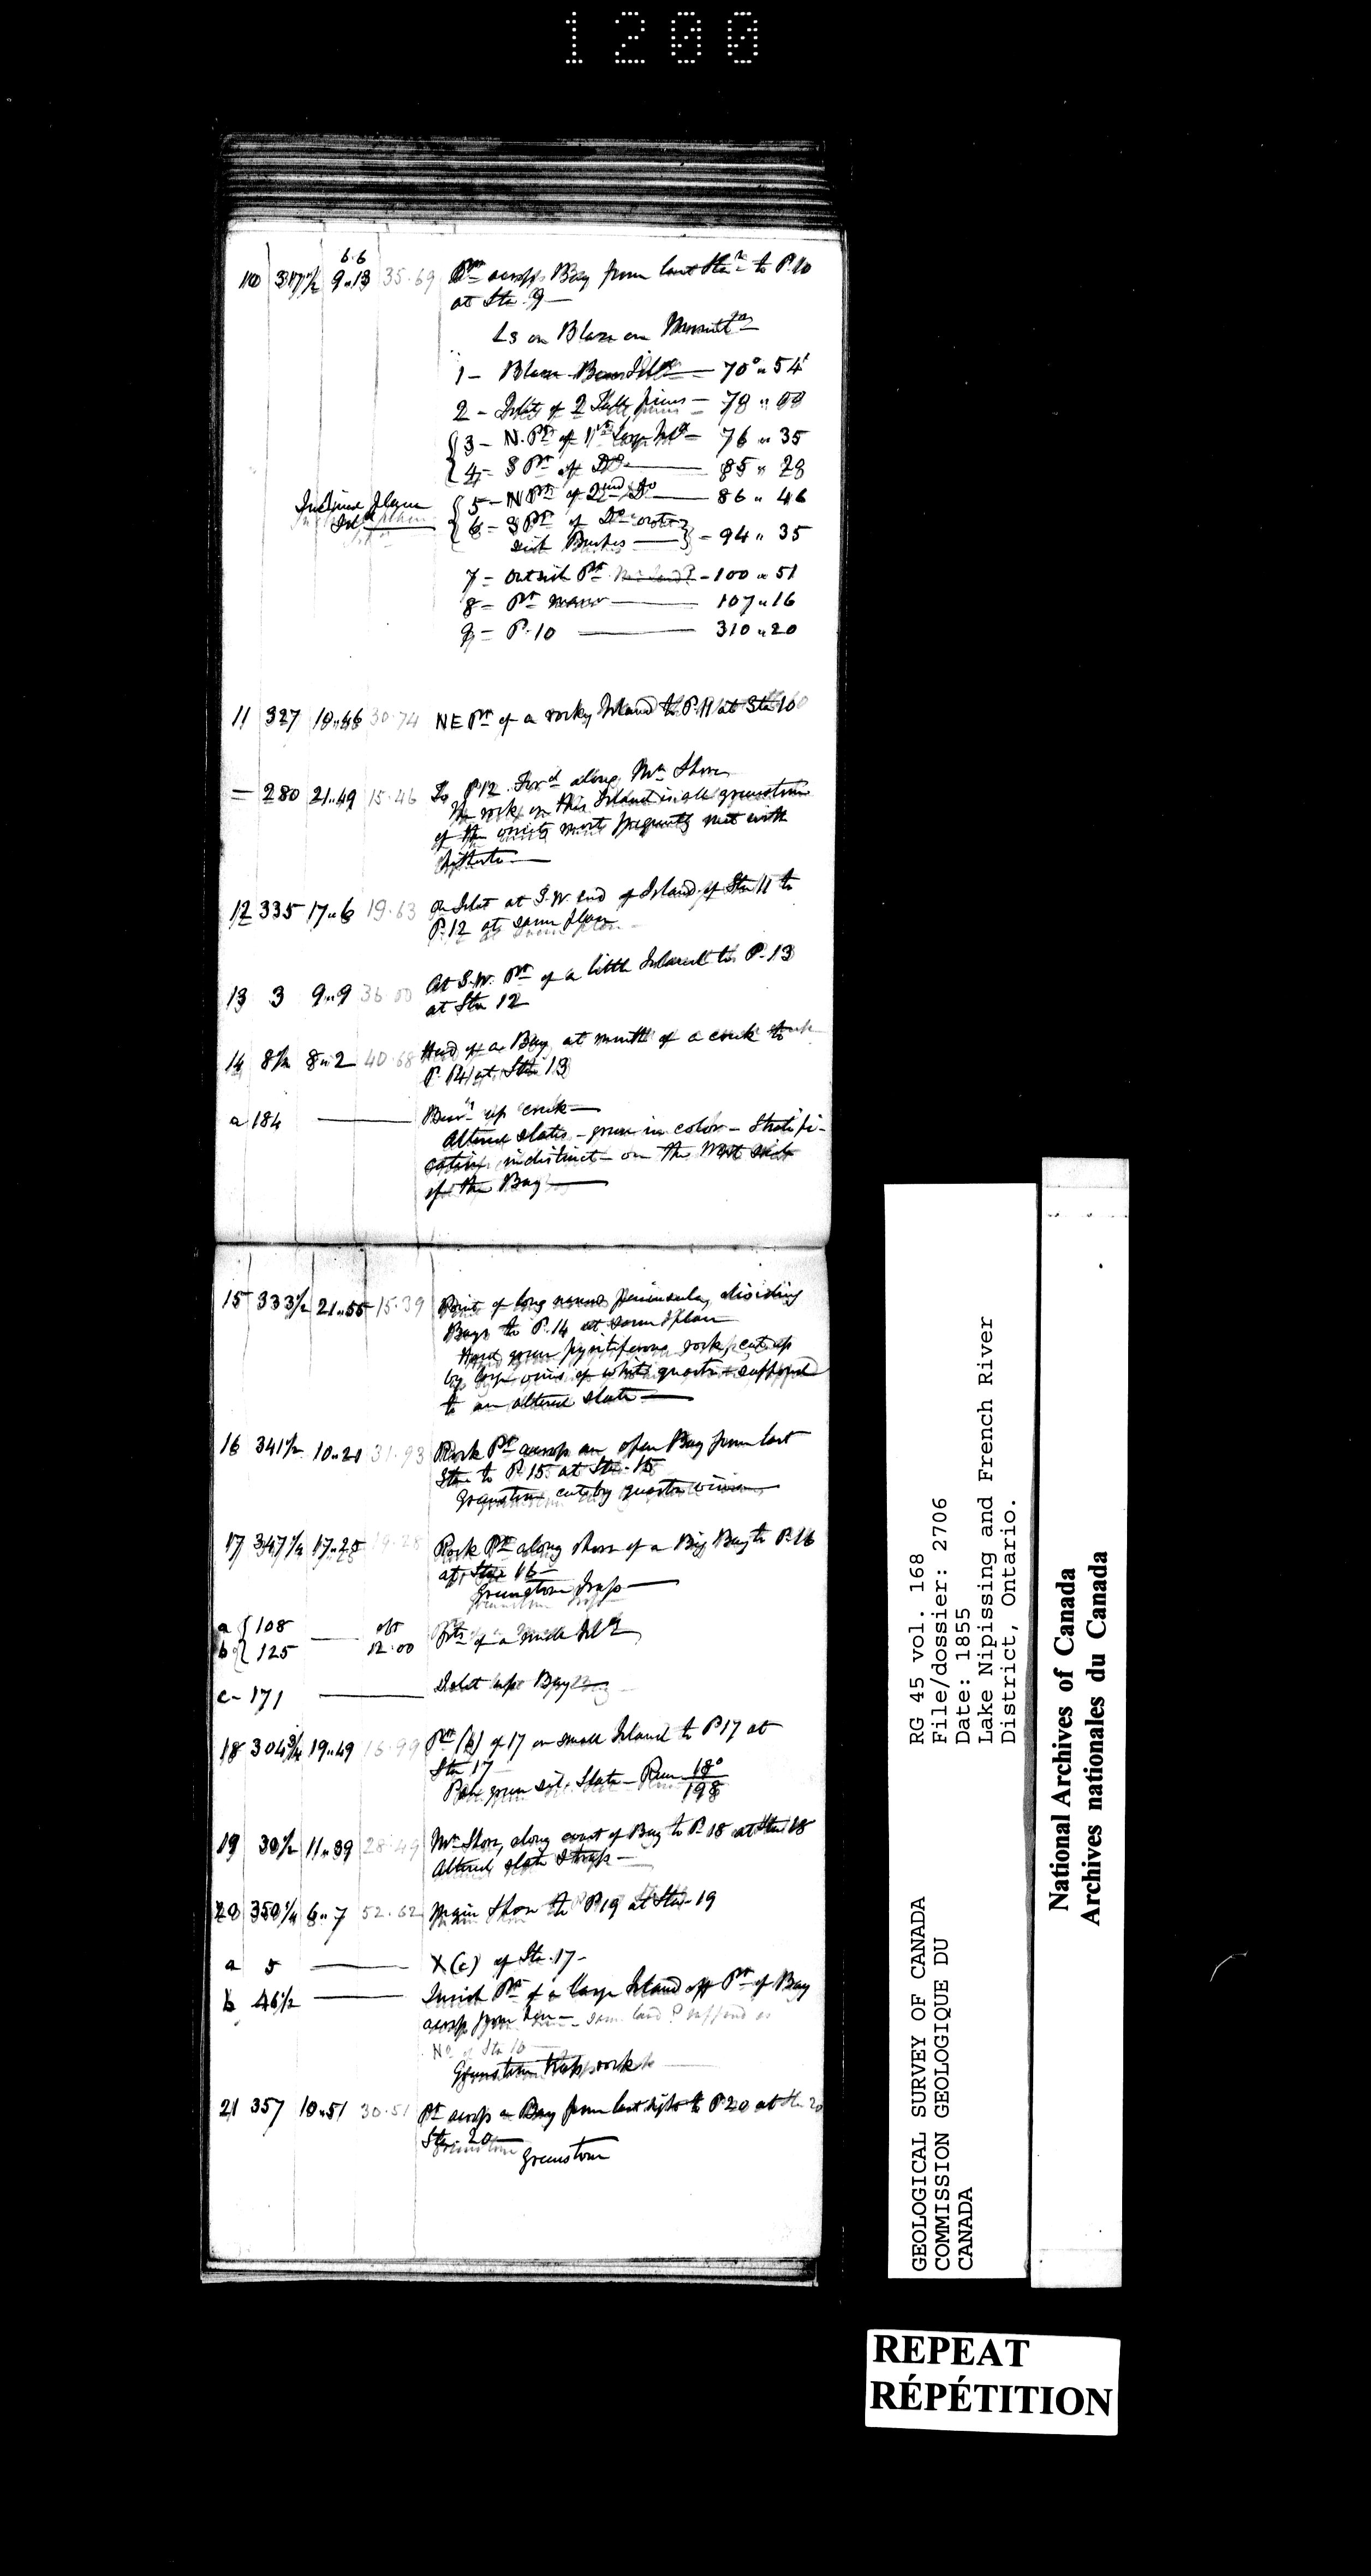 1200
6.6
10 317½ 9..13 35.69 Pt across Bay from last Stan to P.10
at Sta. 9—
Ls on Blaze on
1 - Blaze — 70° " 54'
2 - Islet of 2 pines — 78 "
3 - N. Pt of 1st large Isld — 76 " 35
4 - S Pt of Do — 85 " 28
5 - N Pt of 2nd Do — 86 " 46
Inclined plane
Isld
6 - S Pt of Do
Bushes — 94 " 35
7 - Outside Pt — 100 " 51
8 - Pt — 107 " 16
9 - P.10 — 310 " 20
11 327 18..46 30.74 NE Pt of a rocky Island to P.11 at Sta 10
= 280 21..49 15.46 To P12. Ford along Mn Shore
The rock on this Island is all greenstone
of the most frequently met with
hitherto —
12 335 17..6 19.63 On Islet at S.W. end of Island of Sta 11 to
P.12 at same place
13 3 9..9 36.00 At S.W. Pt of a little Island to P.13
at Sta 12
14 8½ 8..2 40.68 Head of a Bay at mouth of a creek to
P.14 at Sta 13
a 184 — up creek —
Altered slates - green in color - Stratifi-
cation indistinct - on the West side
of the Bay —
15 333½ 21..55 15.39 Point of long narrow peninsula, dividing
Bays to P.14 at same place
Hard green pyritiferous rock, cut up
by large veins of white quartz - supposed
to be an altered slate —
16 341½ 10..20 31.93 Rock Pt across an open Bay from last
Sta to P.15 at Sta. 15
Greenstone cut by quartz veins —
17 347½ 17..25 19.28 Rock Pt along shore of a Big Bay to P.16
at Sta 16 —
Greenstone trap —
a 108
b 125 — abt 12.00 Pts of a small Isld
c - 171 — Islet up Bay —
18 304¾ 19..49 16.99 Pt (b) of 17 on small Island to P17 at
Sta 17
Pale green sil. Slate — Run 18°
198
19 30½ 11..39 28.49 Mn Shore, along coast of Bay to P.18 at Sta 18
Altered slate & trap —
20 350¼ 6..7 52.62 Main Shore to P19 at Sta 19
a 5 — X (c) of Sta. 17 -
b 46½ — Inside Pt of a large Island off Pt of Bay
across from here — same land ? supposed as
No. of Sta 16
Greenstone trap rock
21 357 10..51 30.51 Pt across a Bay from last sight to P 20 at Sta 20
Sta. 20
Greenstone
GEOLOGICAL SURVEY OF CANADA
COMMISSION GEOLOGIQUE DU
CANADA
RG 45 vol. 168
File/dossier: 2706
Date: 1855
Lake Nipissing and French River
District, Ontario.
National Archives of Canada
Archives nationales du Canada
REPEAT
RÉPÉTITION